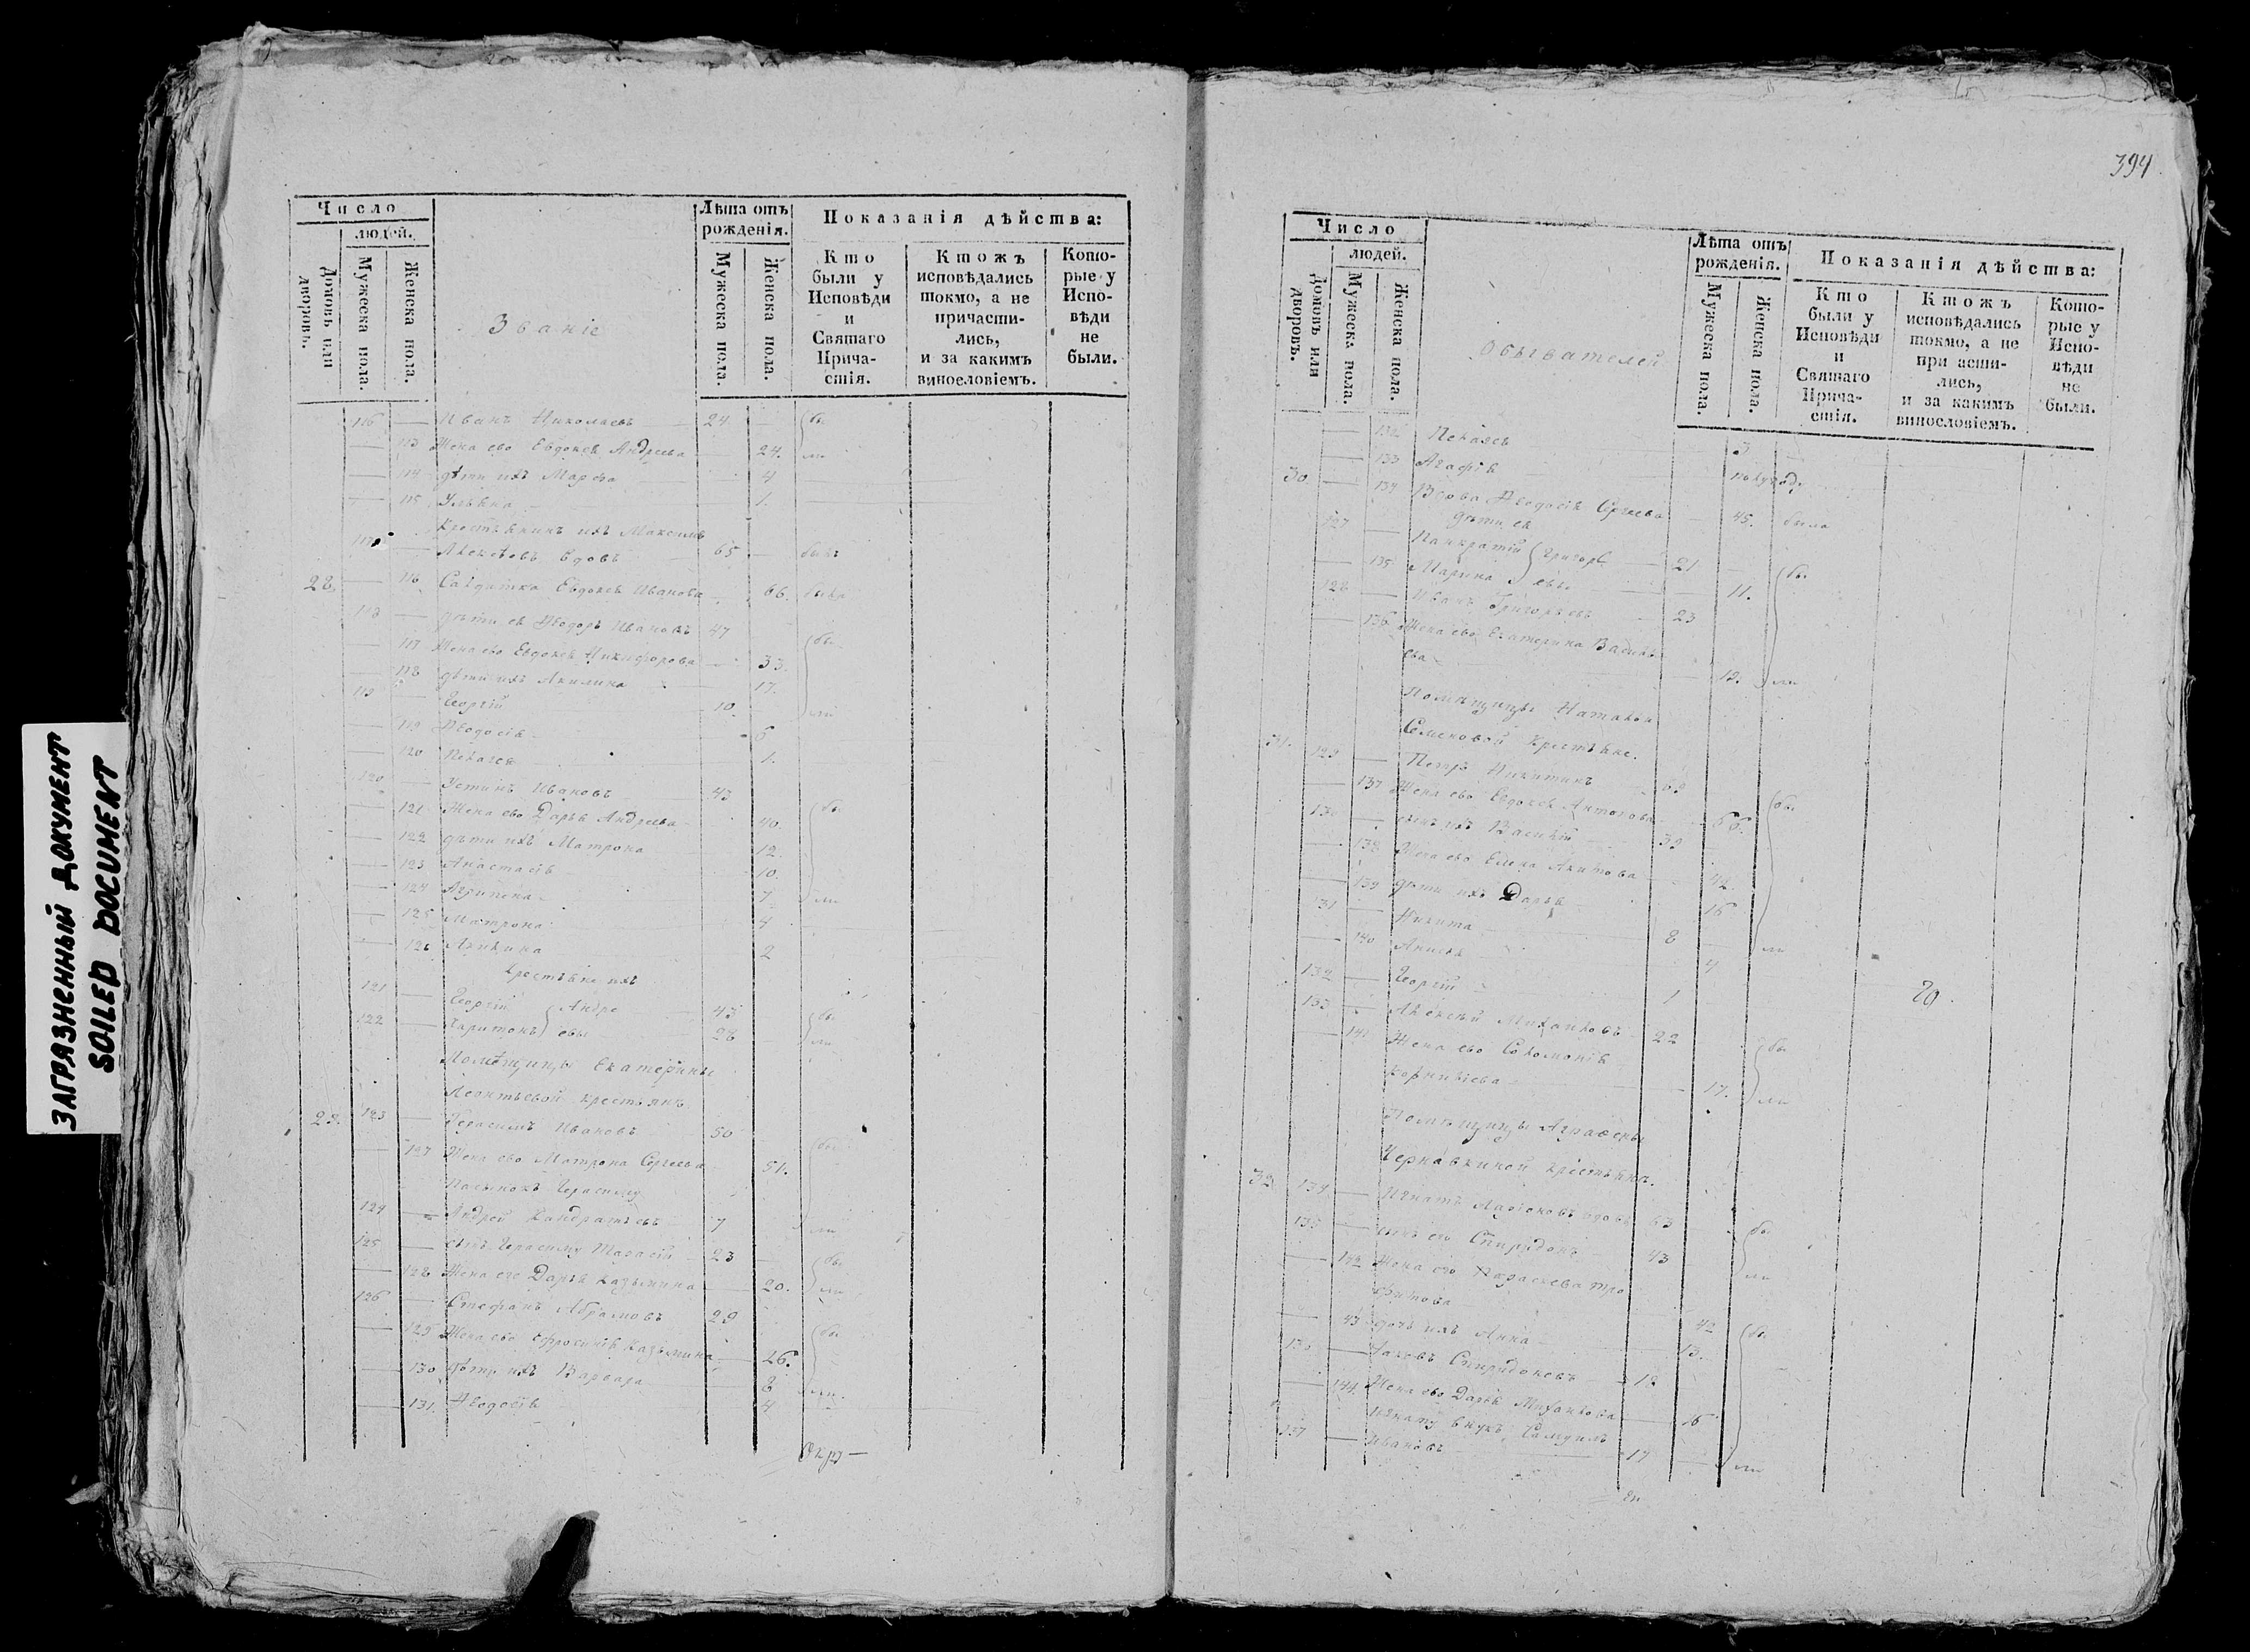 394
ЗАГРЯЗНЕННЫЙ ДОКУМЕНТ
SOILED DOCUMENT
Число
людей.
Домовъ или дворовъ.
Мужеска пола.
Женска пола.
Званіе
Лѣта отъ рожденія.
Мужеска пола.
Женска пола.
Показанія дѣйства:
Кто были у Исповѣди и Святаго Прича-стія.
Ктожъ исповѣдались токмо, а не причасти-лись, и за какимъ винословіемъ.
Кото-рые у Испо-вѣди не были.
116 Иванъ Николаевъ 24 бы
113 Жена ево Евдокея Андреева 24. ли
114 дѣти ихъ Марѳа 4
115 Ульяна 1.
Крестьянинъ ихъ Максимъ
вдовъ 65 былъ
28 116 Салдатка Евдокея Иванова 66. была
118 дѣти ея Ѳеодоръ Ивановъ 47 бы
117 Жена ево Евдокея Никифорова 33.
118 дѣти ихъ Акилина 17.
119 Георгій 10. ли
119 Ѳеодосія 6
120 Пелагея 1.
120 Устинъ Ивановъ 43 бы
121 Жена ево Дарья Андреева 40.
122 дѣти ихъ Матрона 12.
123 Анастасія 10.
124 Агрипена 7 ли
125 Матрона 4
126 Акилина 2
Крестьяне ихъ
121 Георгій Андре 45 бы
122 Харитонъ евы 28 ли
Помѣщицы Екатерины
Леонтьевой крестьянъ
29. 123 Герасимъ Ивановъ 50 бы
127 Жена ево Матрона Сергеева 51.
Пасынокъ Герасиму
124 Андрей Кандратьевъ 7 ли
125 сынъ Герасиму Тарасій 23 бы
128 Жена его Дарья Казьмина 20. ли
126 Стефанъ Абрамовъ 29 бы
129 Жена ево Ефросинія Казьмина 26.
130 дѣти ихъ Варвара 8 ли.
131. Ѳеодосія 4
Число
людей.
Домовъ или дворовъ.
Мужеска пола.
Женска пола.
Обывателей
Лѣта отъ рожденія.
Мужеска пола.
Женска пола.
Показанія дѣйства:
Кто были у Исповѣди и Святаго Прича-стія.
Ктожъ исповѣдались токмо, а не при асти-лись, и за какимъ винословіемъ.
Кото-рые у Испо-вѣди не были.
132 Пелагея 3
133 Агафія полугоду
30. 134 Вдова Ѳеодосія Сергеева 45. была
дѣти ея
127 Панкратій Григорь 21 бы
135 Марина евы 11.
128 Иванъ Григорьевъ 23
136 Жена ево Екатерина Василь
ева 19. ли
Помѣщицы Натальи
крестьяне.
31. 129 Петръ Никитинъ 69 бы
137 Жена ево Евдокея Антонова 66.
130 сынъ ихъ Василій 39
138 Жена ево Елена 42.
139 дѣти ихъ Дарья 16
131 Никита 8 ли
140 Анисья 4
132 Георгій 1
133 Алексѣй Михайловъ 22 бы
141 Жена ево Соломонія
Корнилиева 17. ли
Помѣщицы Аграфены
Чернавкиной крестьяне.
32 134 Игнатъ Ларіоновъ вдовъ 63 бы
135 сынъ его Спиридонъ 43 ли
142 Жена его Параскева Тро
фимова 42 бы
43 дочь ихъ Анна 13.
136 Іаковъ Спиридоновъ 18
144 Жена ево Дарья Михайлова 16
137 Игнату внукъ Самуилъ
Ивановъ 14 ли